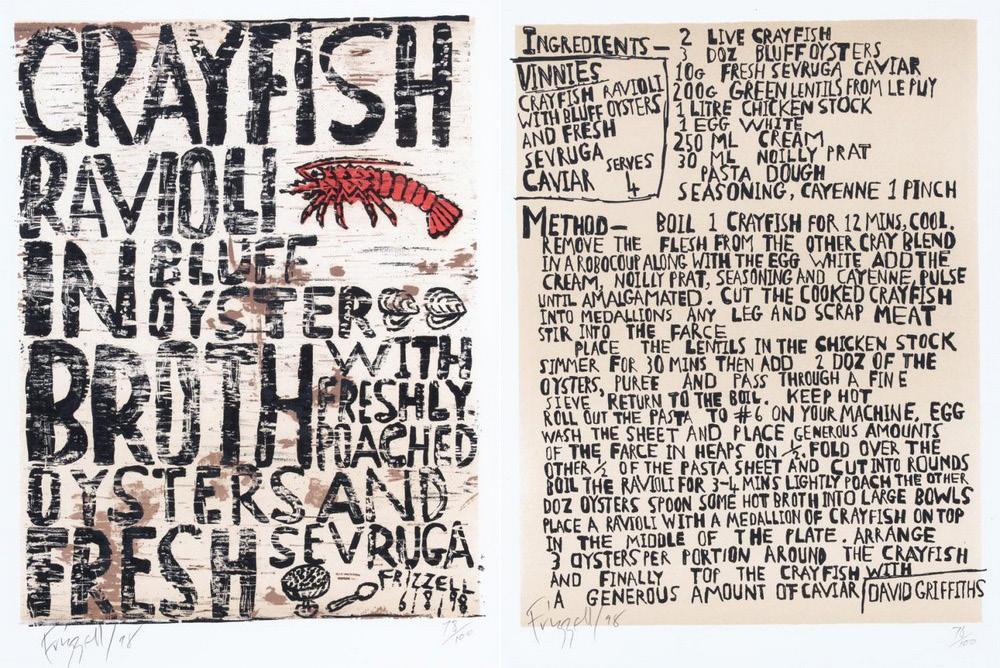 CRAYFISH
RAVIOLI
IN BLUFF
OYSTER
BROTH WITH
FRESHLY
POACHED
OYSTERS AND
FRESH SEVRUGA
FRIZZELL
6/8/98
Frizzell/98
78/100
INGREDIENTS—
2 LIVE CRAYFISH
3 DOZ BLUFF OYSTERS
10G FRESH SEVRUGA CAVIAR
200G GREEN LENTILS FROM LE PUY
1 LITRE CHICKEN STOCK
1 EGG WHITE
250 ML CREAM
30 ML NOILLY PRAT
PASTA DOUGH
SEASONING, CAYENNE 1 PINCH
VINNIES
CRAYFISH RAVIOLI
WITH BLUFF OYSTERS
AND FRESH
SEVRUGA
CAVIAR
SERVES
4
METHOD— BOIL 1 CRAYFISH FOR 12 MINS, COOL.
REMOVE THE FLESH FROM THE OTHER CRAY BLEND
IN A ROBOCOUP ALONG WITH THE EGG WHITE ADD THE
CREAM, NOILLY PRAT, SEASONING AND CAYENNE, PULSE
UNTIL AMALGAMATED. CUT THE COOKED CRAYFISH
INTO MEDALLIONS ANY LEG AND SCRAP MEAT
STIR INTO THE FARCE
PLACE THE LENTILS IN THE CHICKEN STOCK
SIMMER FOR 30 MINS THEN ADD 2 DOZ OF THE
OYSTERS, PUREE AND PASS THROUGH A FINE
SIEVE RETURN TO THE BOIL. KEEP HOT
ROLL OUT THE PASTA TO #6 ON YOUR MACHINE, EGG
WASH THE SHEET AND PLACE GENEROUS AMOUNTS
OF THE FARCE IN HEAPS ON ½. FOLD OVER THE
OTHER ½ OF THE PASTA SHEET AND CUT INTO ROUNDS
BOIL THE RAVIOLI FOR 3-4 MINS LIGHTLY POACH THE OTHER
DOZ OYSTERS SPOON SOME HOT BROTH INTO LARGE BOWLS
PLACE A RAVIOLI WITH A MEDALLION OF CRAYFISH ON TOP
IN THE MIDDLE OF THE PLATE. ARRANGE
3 OYSTERS PER PORTION AROUND THE CRAYFISH
AND FINALLY TOP THE CRAYFISH WITH
A GENEROUS AMOUNT OF CAVIAR DAVID GRIFFITHS
Frizzell/98
78/100